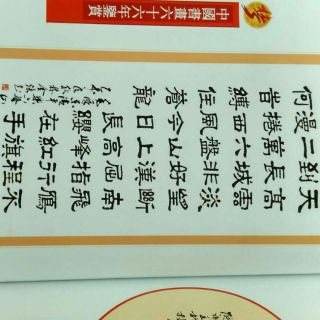 中國書畫六十六年鑒賞
天高雲淡望斷南飛雁不
到長城非好漢屈指行程
二萬六盤山上高峰紅旗
漫捲西風今日長纓在手
何旹縛住蒼龍